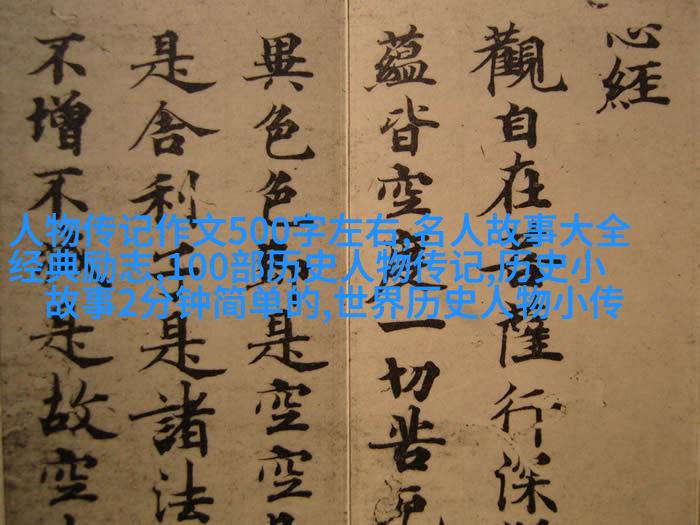 心經
觀自在菩薩行深
蘊皆空度一切苦厄
異色色即是空空
是舍利子是諸法
不增不減是故空
人物传记作文500字左右,名人故事大全
经典励志,100部历史人物传记,历史小
故事2分钟简单的,世界历史人物小传